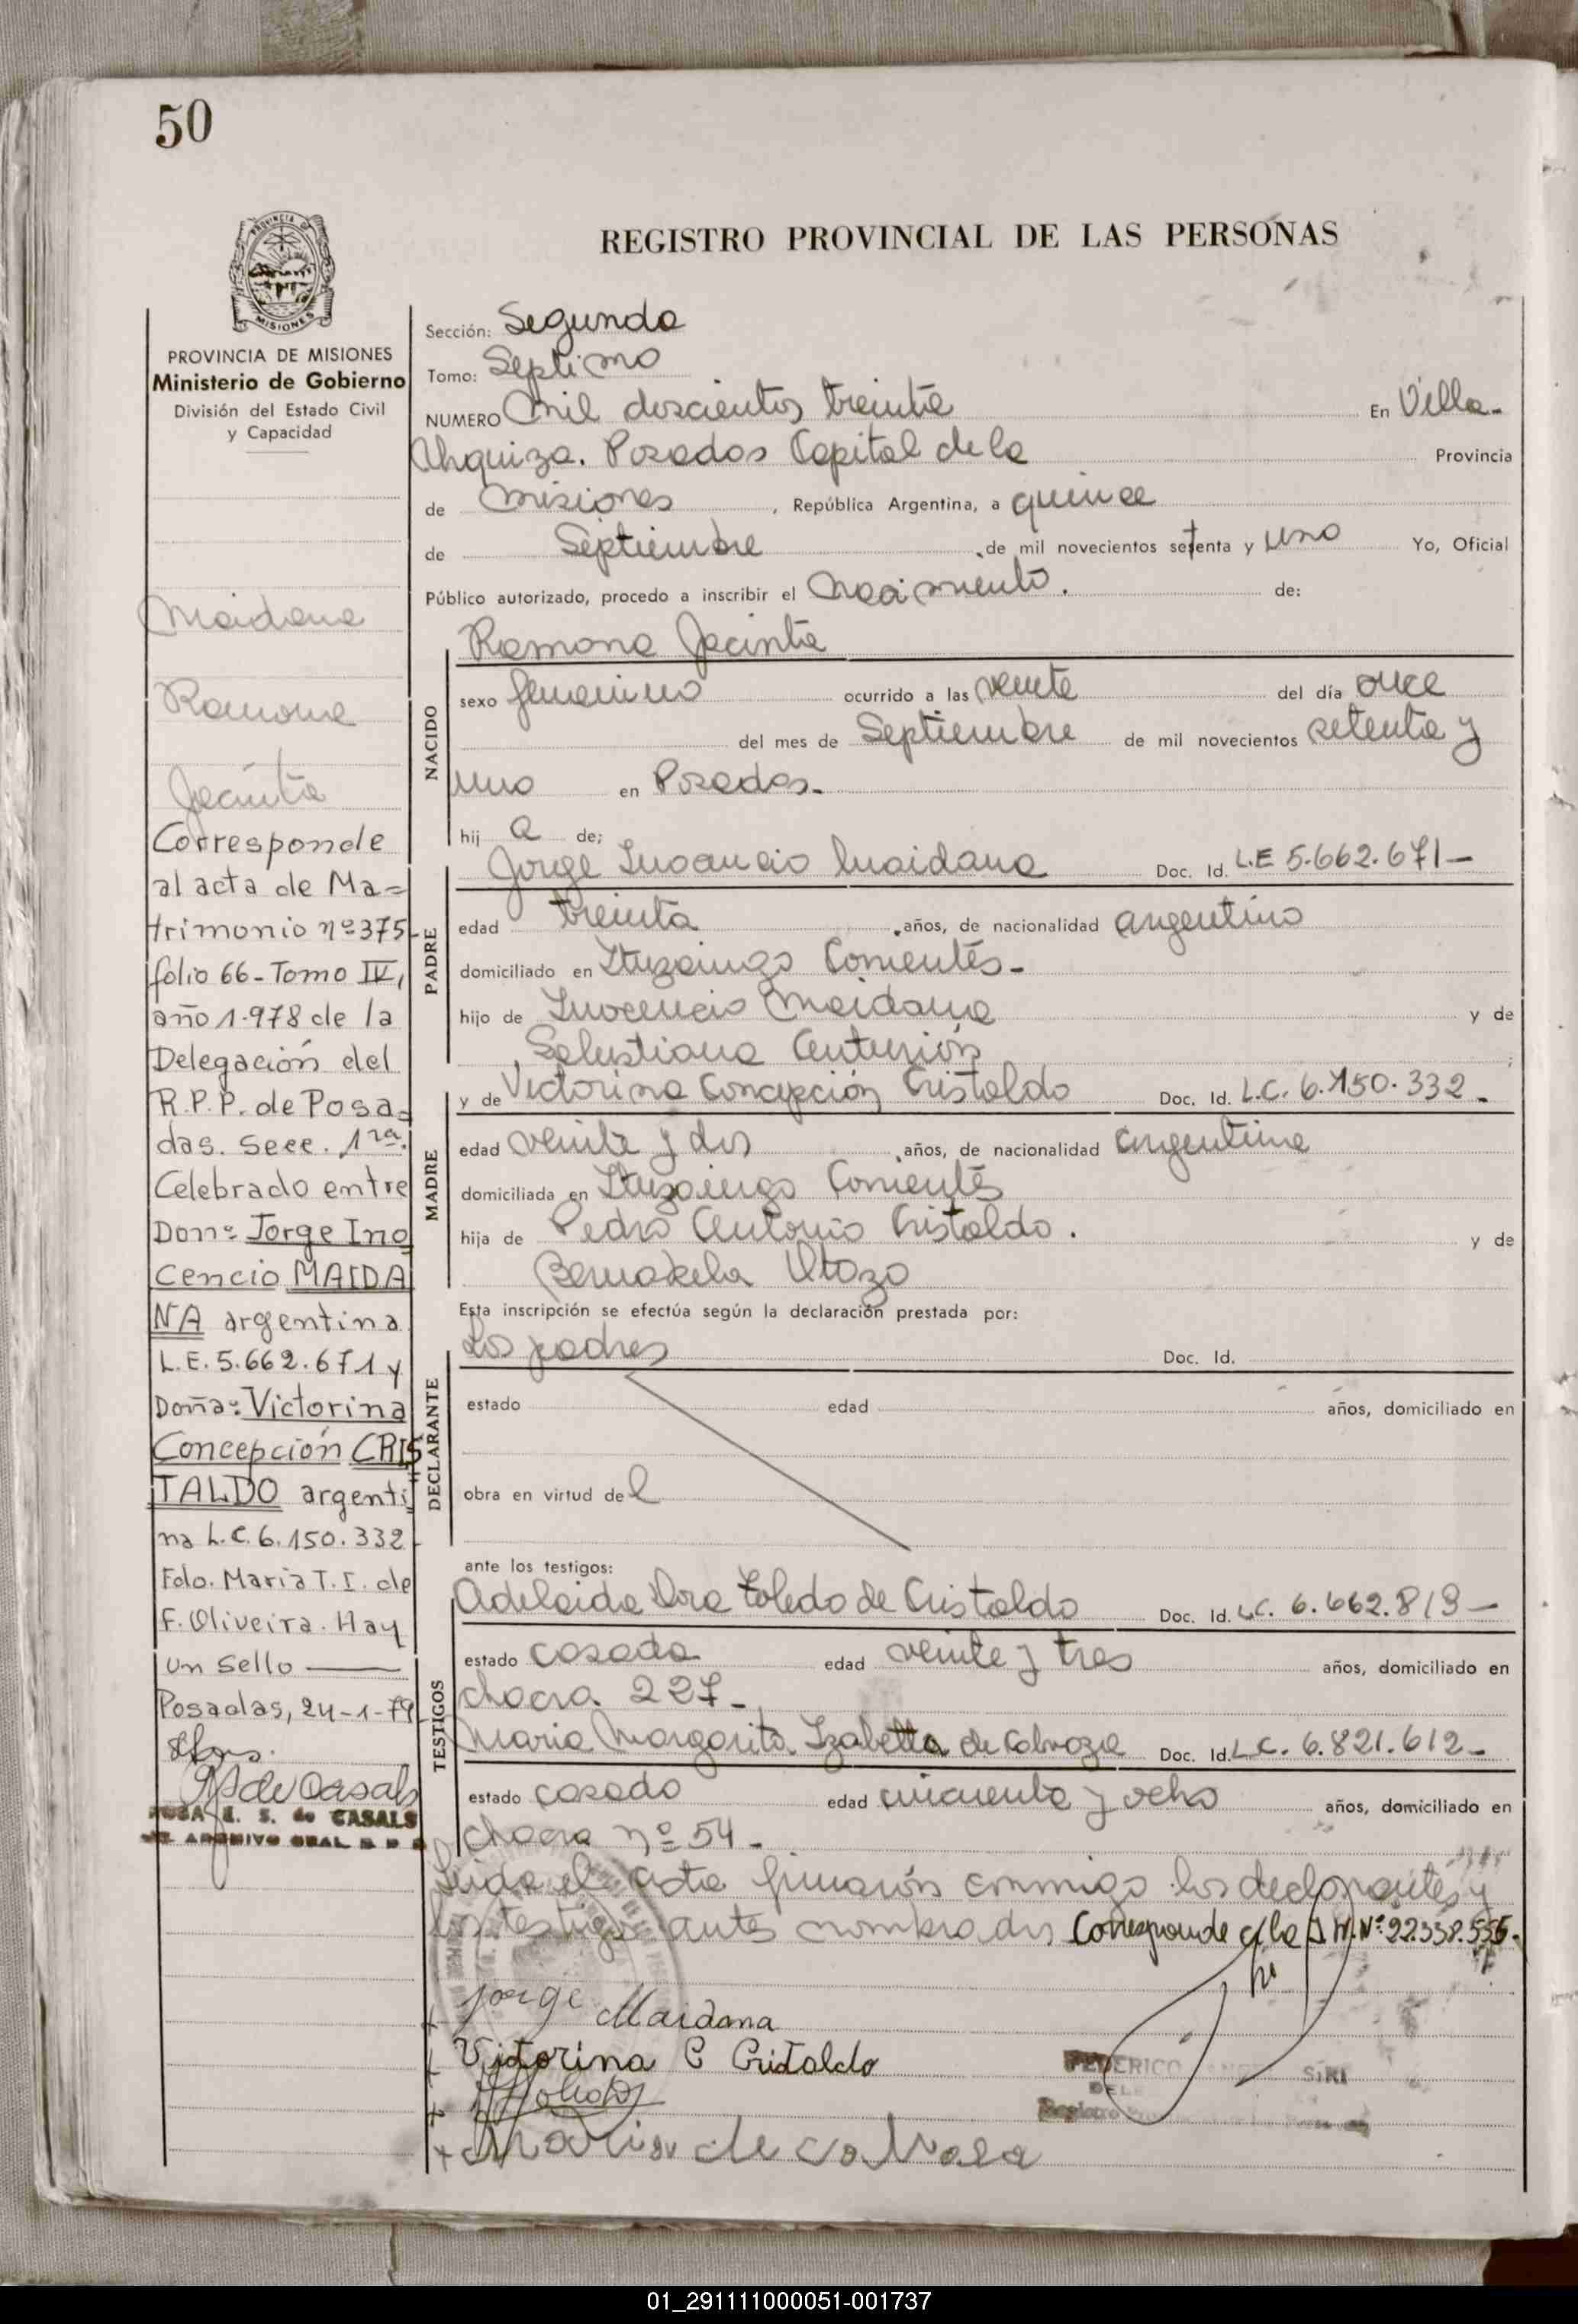 50
PROVINCIA DE MISIONES
Ministerio de Gobierno
División del Estado Civil
y Capacidad
Maidana
Ramona
Jacinta
Corresponde
al acta de Ma=
trimonio nº 375-
folio 66-Tomo IV,
año 1.978 de la
Delegación del
R.P.P. de Posa=
das. Secc. 1ra.
Celebrado entre
Don: Jorge Ino
cencio MAIDA
NA argentina
L.E. 5.662.671 y
Doña: Victorina
Concepción CRIS
TALDO argenti
na L.C. 6.150.332
Fdo. Maria T. I. de
F. Oliveira. Hay
un sello
Posadas, 24-1-79
de Casals
E. S. de CASALS
REGISTRO PROVINCIAL DE LAS PERSONAS
Sección: Segunda
Tomo: Septimo
NUMERO Mil doscientos treinta En Villa-
Urquiza. Posadas Capital de la Provincia
de Misiones, República Argentina, a quince
de Septiembre de mil novecientos setenta y uno Yo, Oficial
Público autorizado, procedo a inscribir el Nacimiento. de:
NACIDO
Ramona Jacinta
sexo femenino ocurrido a las veinte del día once
del mes de Septiembre de mil novecientos setenta y
uno en Posadas.
hij a de;
PADRE
Jorge Inocencio Maidana Doc. Id. L.E 5.662.671-
edad treinta años, de nacionalidad argentino
domiciliado en Ituzaingo Corrientes-
hijo de Inocencio Maidana y de
Selustiana Centurión
MADRE
y de Victorina Concepción Cristaldo Doc. Id. L.C. 6.150.332.
edad veinte y dos años, de nacionalidad argentina
domiciliada en Ituzaingo Corrientes
hija de Pedro Antonio Cristaldo. y de
Esta inscripción se efectúa según la declaración prestada por:
DECLARANTE
Los padres Doc. Id.
estado edad años, domiciliado en
obra en virtud del
ante los testigos:
TESTIGOS
Adelaida Dora Toledo de Cristaldo Doc. Id. L.C. 6.662.819-
estado casada edad veinte y tres años, domiciliado en
chacra 227-
Maria Margarita Izabetta de Doc. Id. L.C. 6.821.612-
estado casada edad cincuenta y ocho años, domiciliado en
chacra nº 54-
Leida el acta firmarón conmigo los declarantes y
los testigos antes nombrados Corresponde a la Nº 22.338.556.
Jorge Maidana
Victorina C Cristaldo
Maria de
FEDERICO ANGEL SIRI
01_291111000051-001737